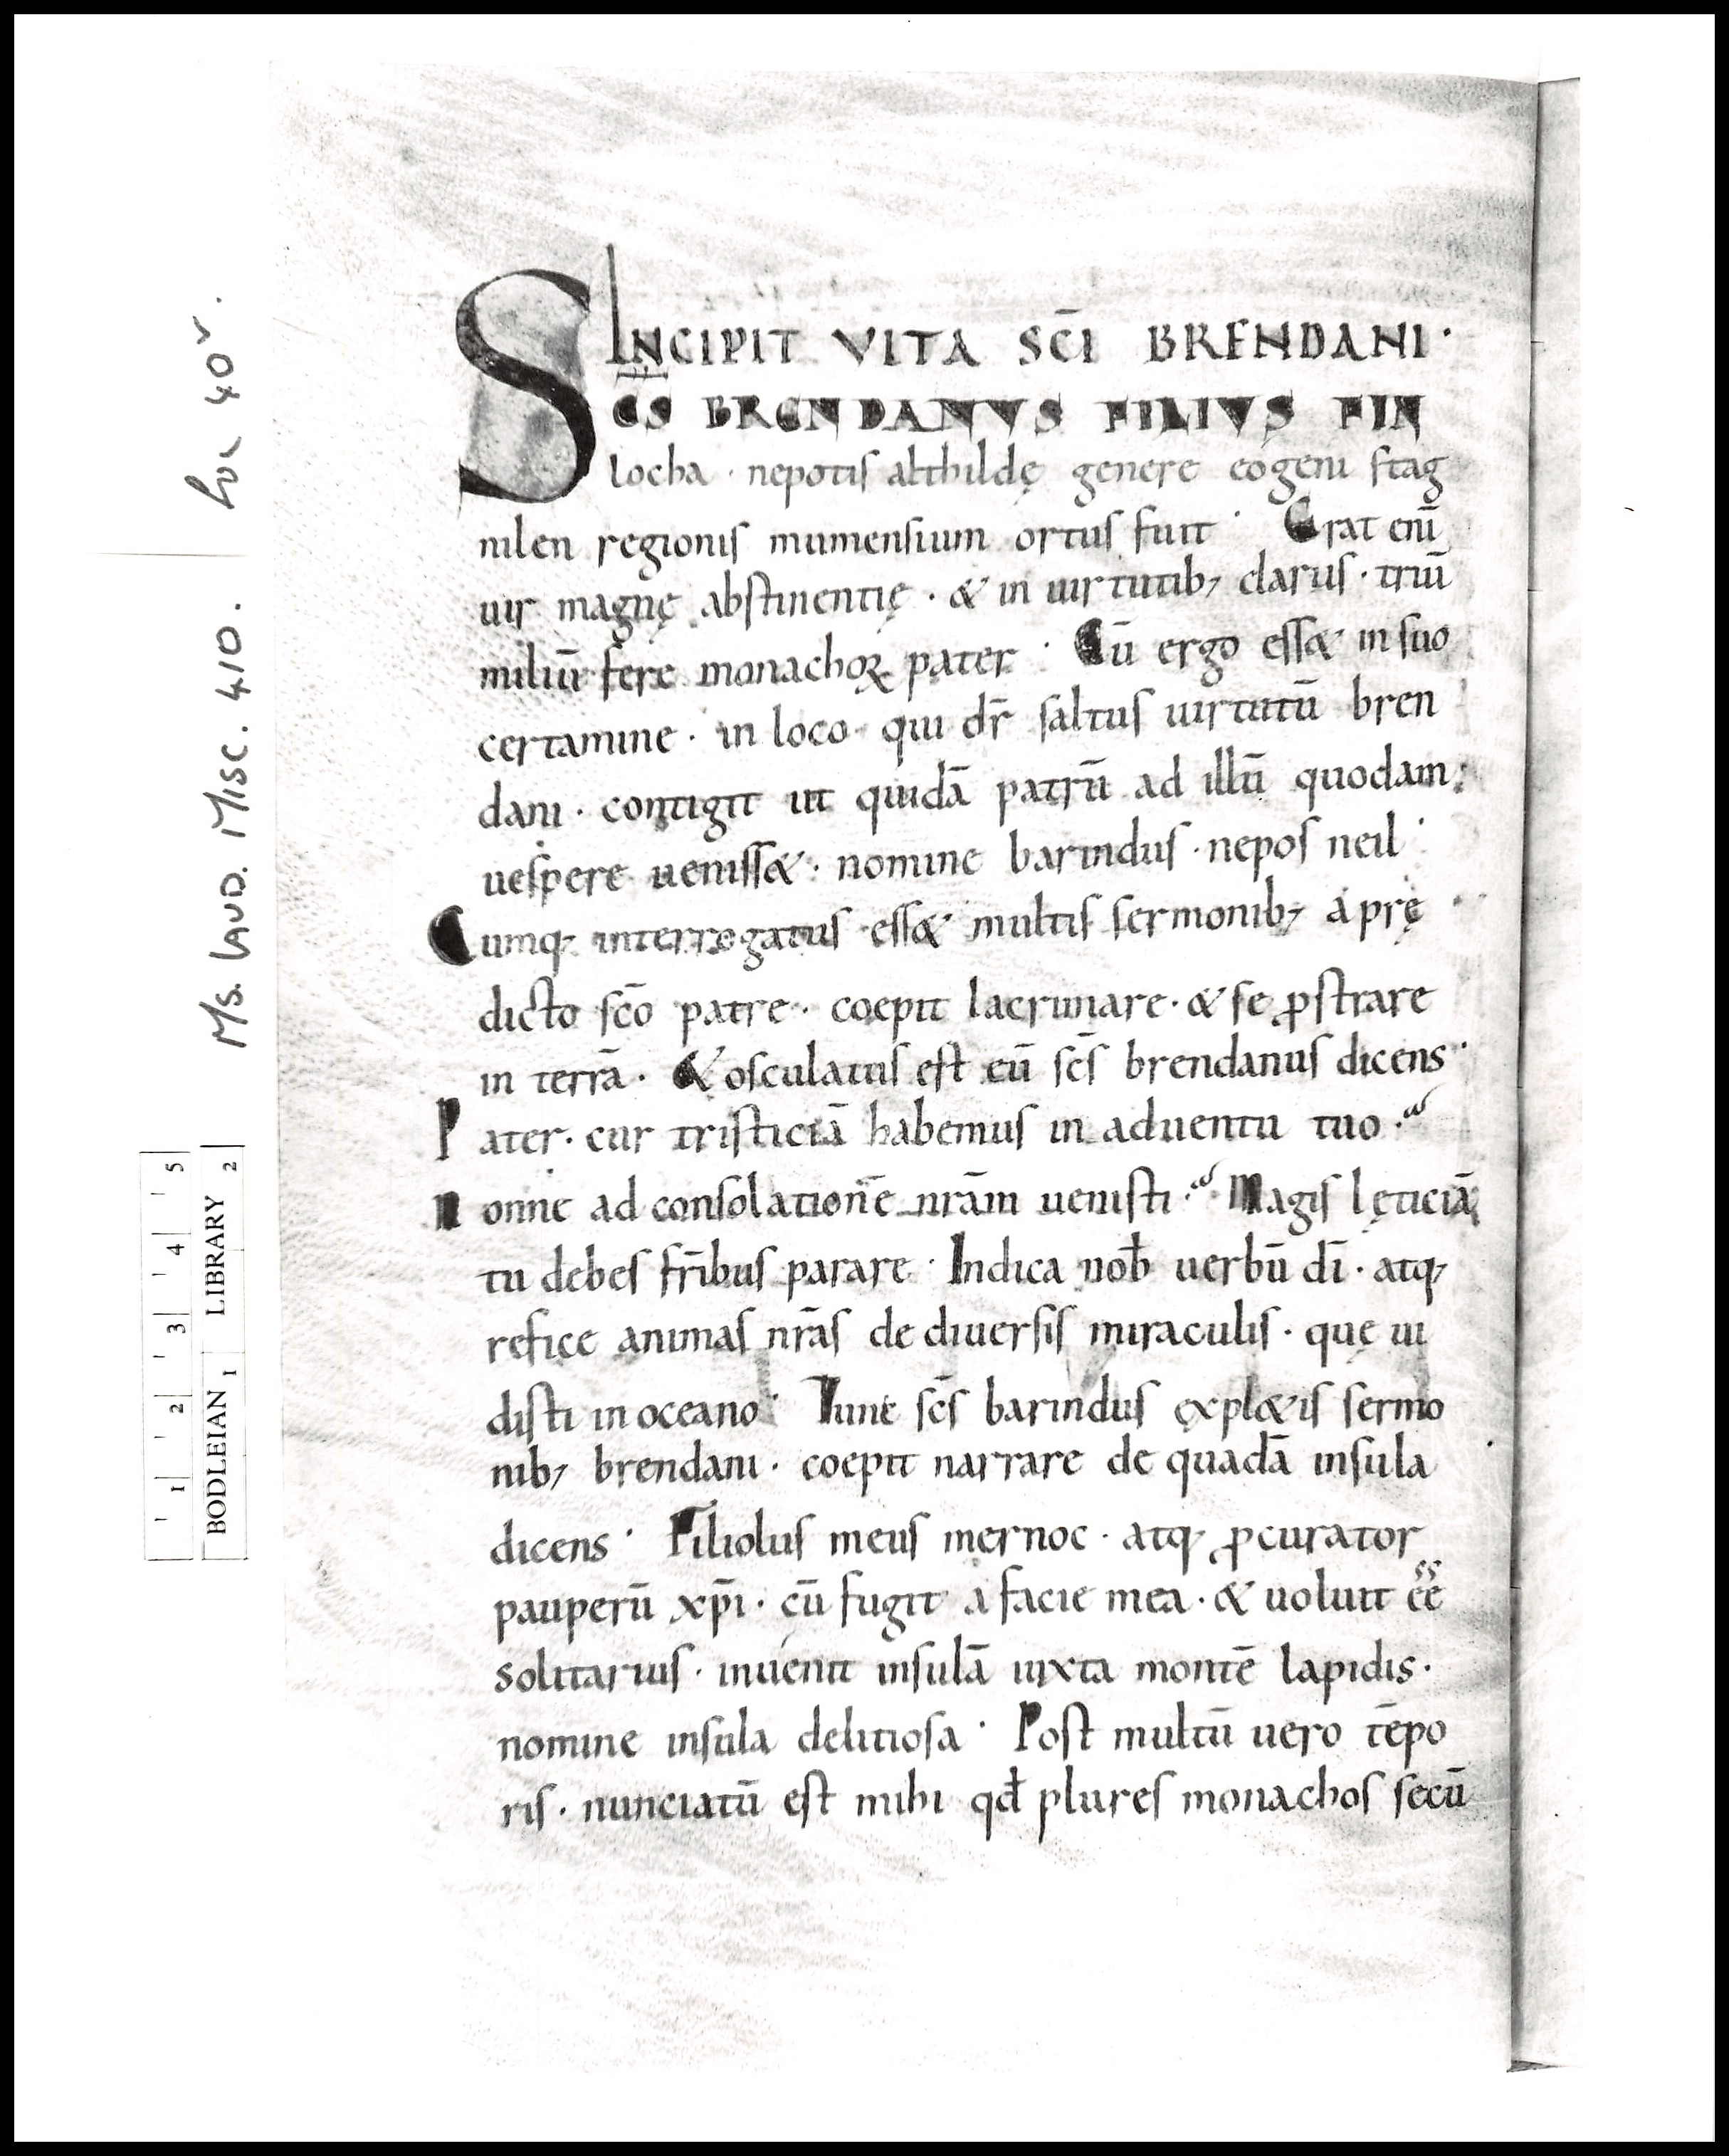 INCIPIT VITA SC̄I BRENDANI·
SC̄S BRENDANVS FILIVS FIN
locha · nepotis althildę genere eogeni stag
nilen regionis mumensium ortus fuit · Erat enī
uir magnę abstinentię · & in uirtutib; clarus · triū
miliū fere monachoꝝ pater · Cū ergo ess& in suo
certamine · in loco qui dr̄ saltus uirtutū bren
dani · contigit ut quidā patrū ad illū quodam
uespere ueniss& · nomine barindus · nepos neil ·
Cumq; interrogatus ess& multis sermonib; a prę
dicto scō patre · coepit lacrimare · & se ꝓstrare
in terrā · & osculatus est eū sc̄s brendanus dicens ·
Pater · cur tristiciā habemus in aduentu tuo ·
Nonne ad consolationē nrām uenisti · Magis lęticiā
tu debes fr̄ibus parare · Indica nob̄ uerbū dī · atq;
refice animas nr̄as de diuersis miraculis · quę ui
disti in oceano · Tunc sc̄s barindus expl&is sermo
nib; brendani · coepit narrare de quadā insula
dicens · Filiolus meus mernoc · atq; ꝓcurator
pauperū xp̄i · cū fugit a facie mea · & uoluit ēē
solitarius · inuenit insulā iuxta montē lapidis ·
nomine insula delitiosa · Post multū uero tēpo
ris · nunciatū est mihi qđ plures monachos secū
MS. LAUD. MISC. 410. fol 40v.
1 2 3 4 5
BODLEIAN 1 LIBRARY 2